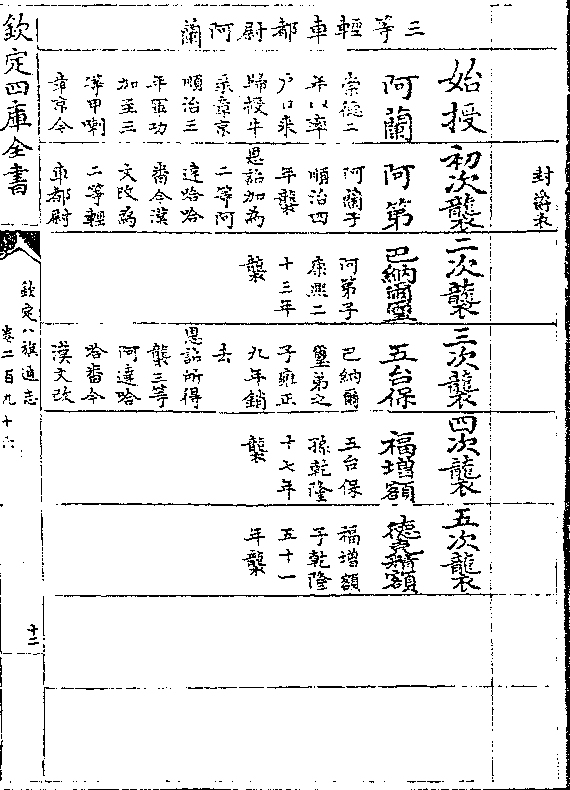 三等輕車都尉阿蘭
封爵表
始授
阿蘭
崇德二
年以率
户口来
歸授牛
彔章京
順治三
年軍功
加至三
等甲喇
章京今
初次襲
阿第
阿蘭子
順治四
年襲
恩詔加為
二等阿
達哈哈
番今漢
文改為
二等輕
車都尉
二次襲
巴納爾璽
阿第子
康熙二
十三年
襲
三次襲
五台保
巴納爾
璽弟之
子雍正
九年銷
去
恩詔所得
襲三等
阿達哈
哈番今
漢文改
四次襲
福增額
五台保
孫乾隆
十七年
襲
五次襲
德克精額
福增額
子乾隆
五十一
年襲
欽定四庫全書
欽定八旗通志
卷二百九十六
十二